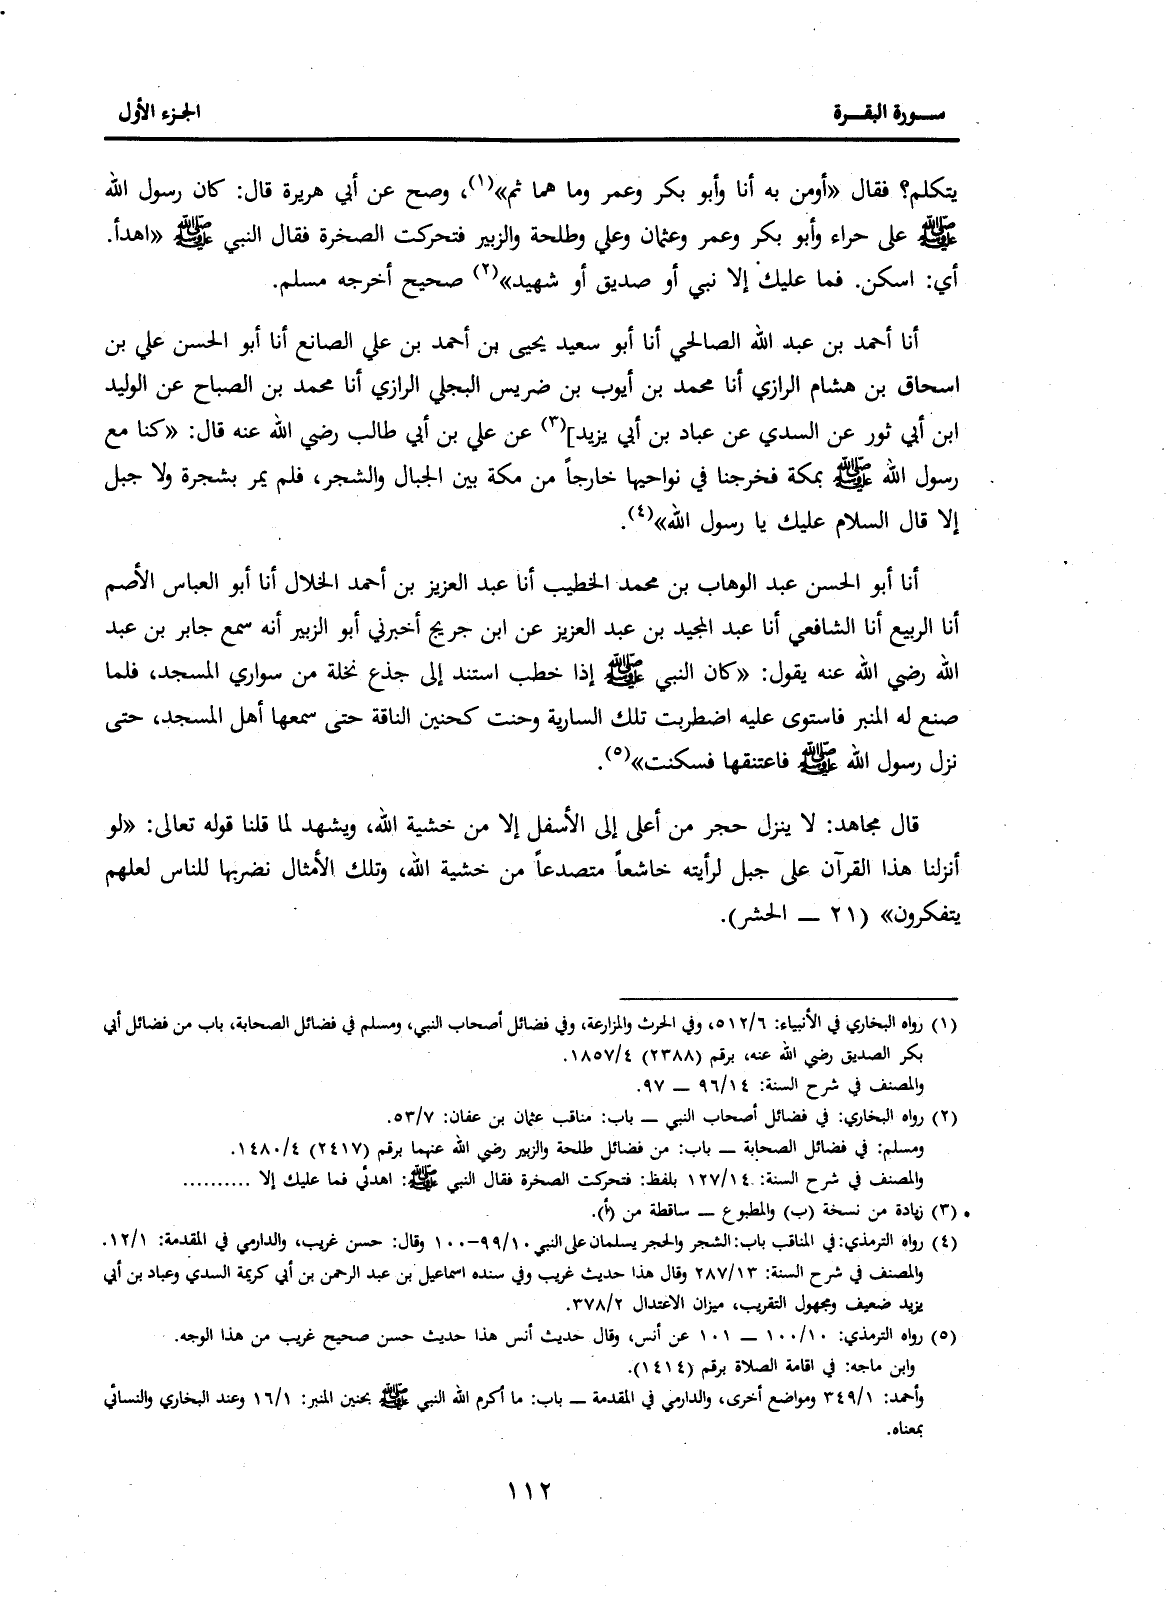 سورة البقرة
الجزء الأول
يتكلم؟ فقال «أومن به أنا وأبو بكر وعمر وما هما ثم»(١)، وصح عن أبي هريرة قال: كان رسول الله
ﷺ على حراء وأبو بكر وعمر وعثمان وعلي وطلحة والزبير فتحركت الصخرة فقال النبي ﷺ «اهدأ.
أي: اسكن. فما عليك إلا نبي أو صديق أو شهيد»(٢) صحيح أخرجه مسلم.
أنا أحمد بن عبد الله الصالحي أنا أبو سعيد يحيى بن أحمد بن علي الصانع أنا أبو الحسن علي بن
اسحاق بن هشام الرازي أنا محمد بن أيوب بن ضريس البجلي الرازي أنا محمد بن الصباح عن الوليد
ابن أبي ثور عن السدي عن عباد بن أبي يزيد](٣) عن علي بن أبي طالب رضي الله عنه قال: «كنا مع
رسول الله ﷺ بمكة فخرجنا في نواحيها خارجاً من مكة بين الجبال والشجر، فلم يمر بشجرة ولا جبل
إلا قال السلام عليك يا رسول الله»(٤).
أنا أبو الحسن عبد الوهاب بن محمد الخطيب أنا عبد العزيز بن أحمد الخلال أنا أبو العباس الأصم
أنا الربيع أنا الشافعي أنا عبد المجيد بن عبد العزيز عن ابن جريج أخبرني أبو الزبير أنه سمع جابر بن عبد
الله رضي الله عنه يقول: «كان النبي ﷺ إذا خطب استند إلى جذع نخلة من سواري المسجد، فلما
صنع له المنبر فاستوى عليه اضطربت تلك السارية وحنت كحنين الناقة حتى سمعها أهل المسجد، حتى
نزل رسول الله ﷺ فاعتنقها فسكنت»(٥).
قال مجاهد: لا ينزل حجر من أعلى إلى الأسفل إلا من خشية الله، ويشهد لما قلنا قوله تعالى: «لو
أنزلنا هذا القرآن على جبل لرأيته خاشعاً متصدعاً من خشية الله، وتلك الأمثال نضربها للناس لعلهم
يتفكرون» (٢١ ــ الحشر).
(١) رواه البخاري في الأنبياء: ٥١٢/٦، وفي الحرث والمزارعة، وفي فضائل أصحاب النبي، ومسلم في فضائل الصحابة، باب من فضائل أبي
بكر الصديق رضي الله عنه، برقم (٢٣٨٨) ١٨٥٧/٤.
والمصنف في شرح السنة: ٩٦/١٤ ــ ٩٧.
(٢) رواه البخاري: في فضائل أصحاب النبي ــ باب: مناقب عثمان بن عفان: ٥٣/٧.
ومسلم: في فضائل الصحابة ــ باب: من فضائل طلحة والزبير رضي الله عنهما برقم (٢٤١٧) ١٤٨٠/٤.
والمصنف في شرح السنة: ١٢٧/١٤ بلفظ: فتحركت الصخرة فقال النبي ﷺ: اهدئي فما عليك إلا ..........
(٣) زيادة من نسخة (ب) والمطبوع ــ ساقطة من (أ).
(٤) رواه الترمذي: في المناقب باب: الشجر والحجر يسلمان على النبي ٩٩/١٠-١٠٠ وقال: حسن غريب، والدارمي في المقدمة: ١٢/١.
والمصنف في شرح السنة: ٢٨٧/١٣ وقال هذا حديث غريب وفي سنده اسماعيل بن عبد الرحمن بن أبي كريمة السدي وعباد بن أبي
يزيد ضعيف ومجهول التقريب، ميزان الاعتدال ٣٧٨/٢.
(٥) رواه الترمذي: ١٠٠/١٠ ــ ١٠١ عن أنس، وقال حديث أنس هذا حديث حسن صحيح غريب من هذا الوجه.
وابن ماجه: في اقامة الصلاة برقم (١٤١٤).
وأحمد: ٣٤٩/١ ومواضع أخرى، والدارمي في المقدمة ــ باب: ما أكرم الله النبي ﷺ بحنين المنبر: ١٦/١ وعند البخاري والنسائي
بمعناه.
١١٢